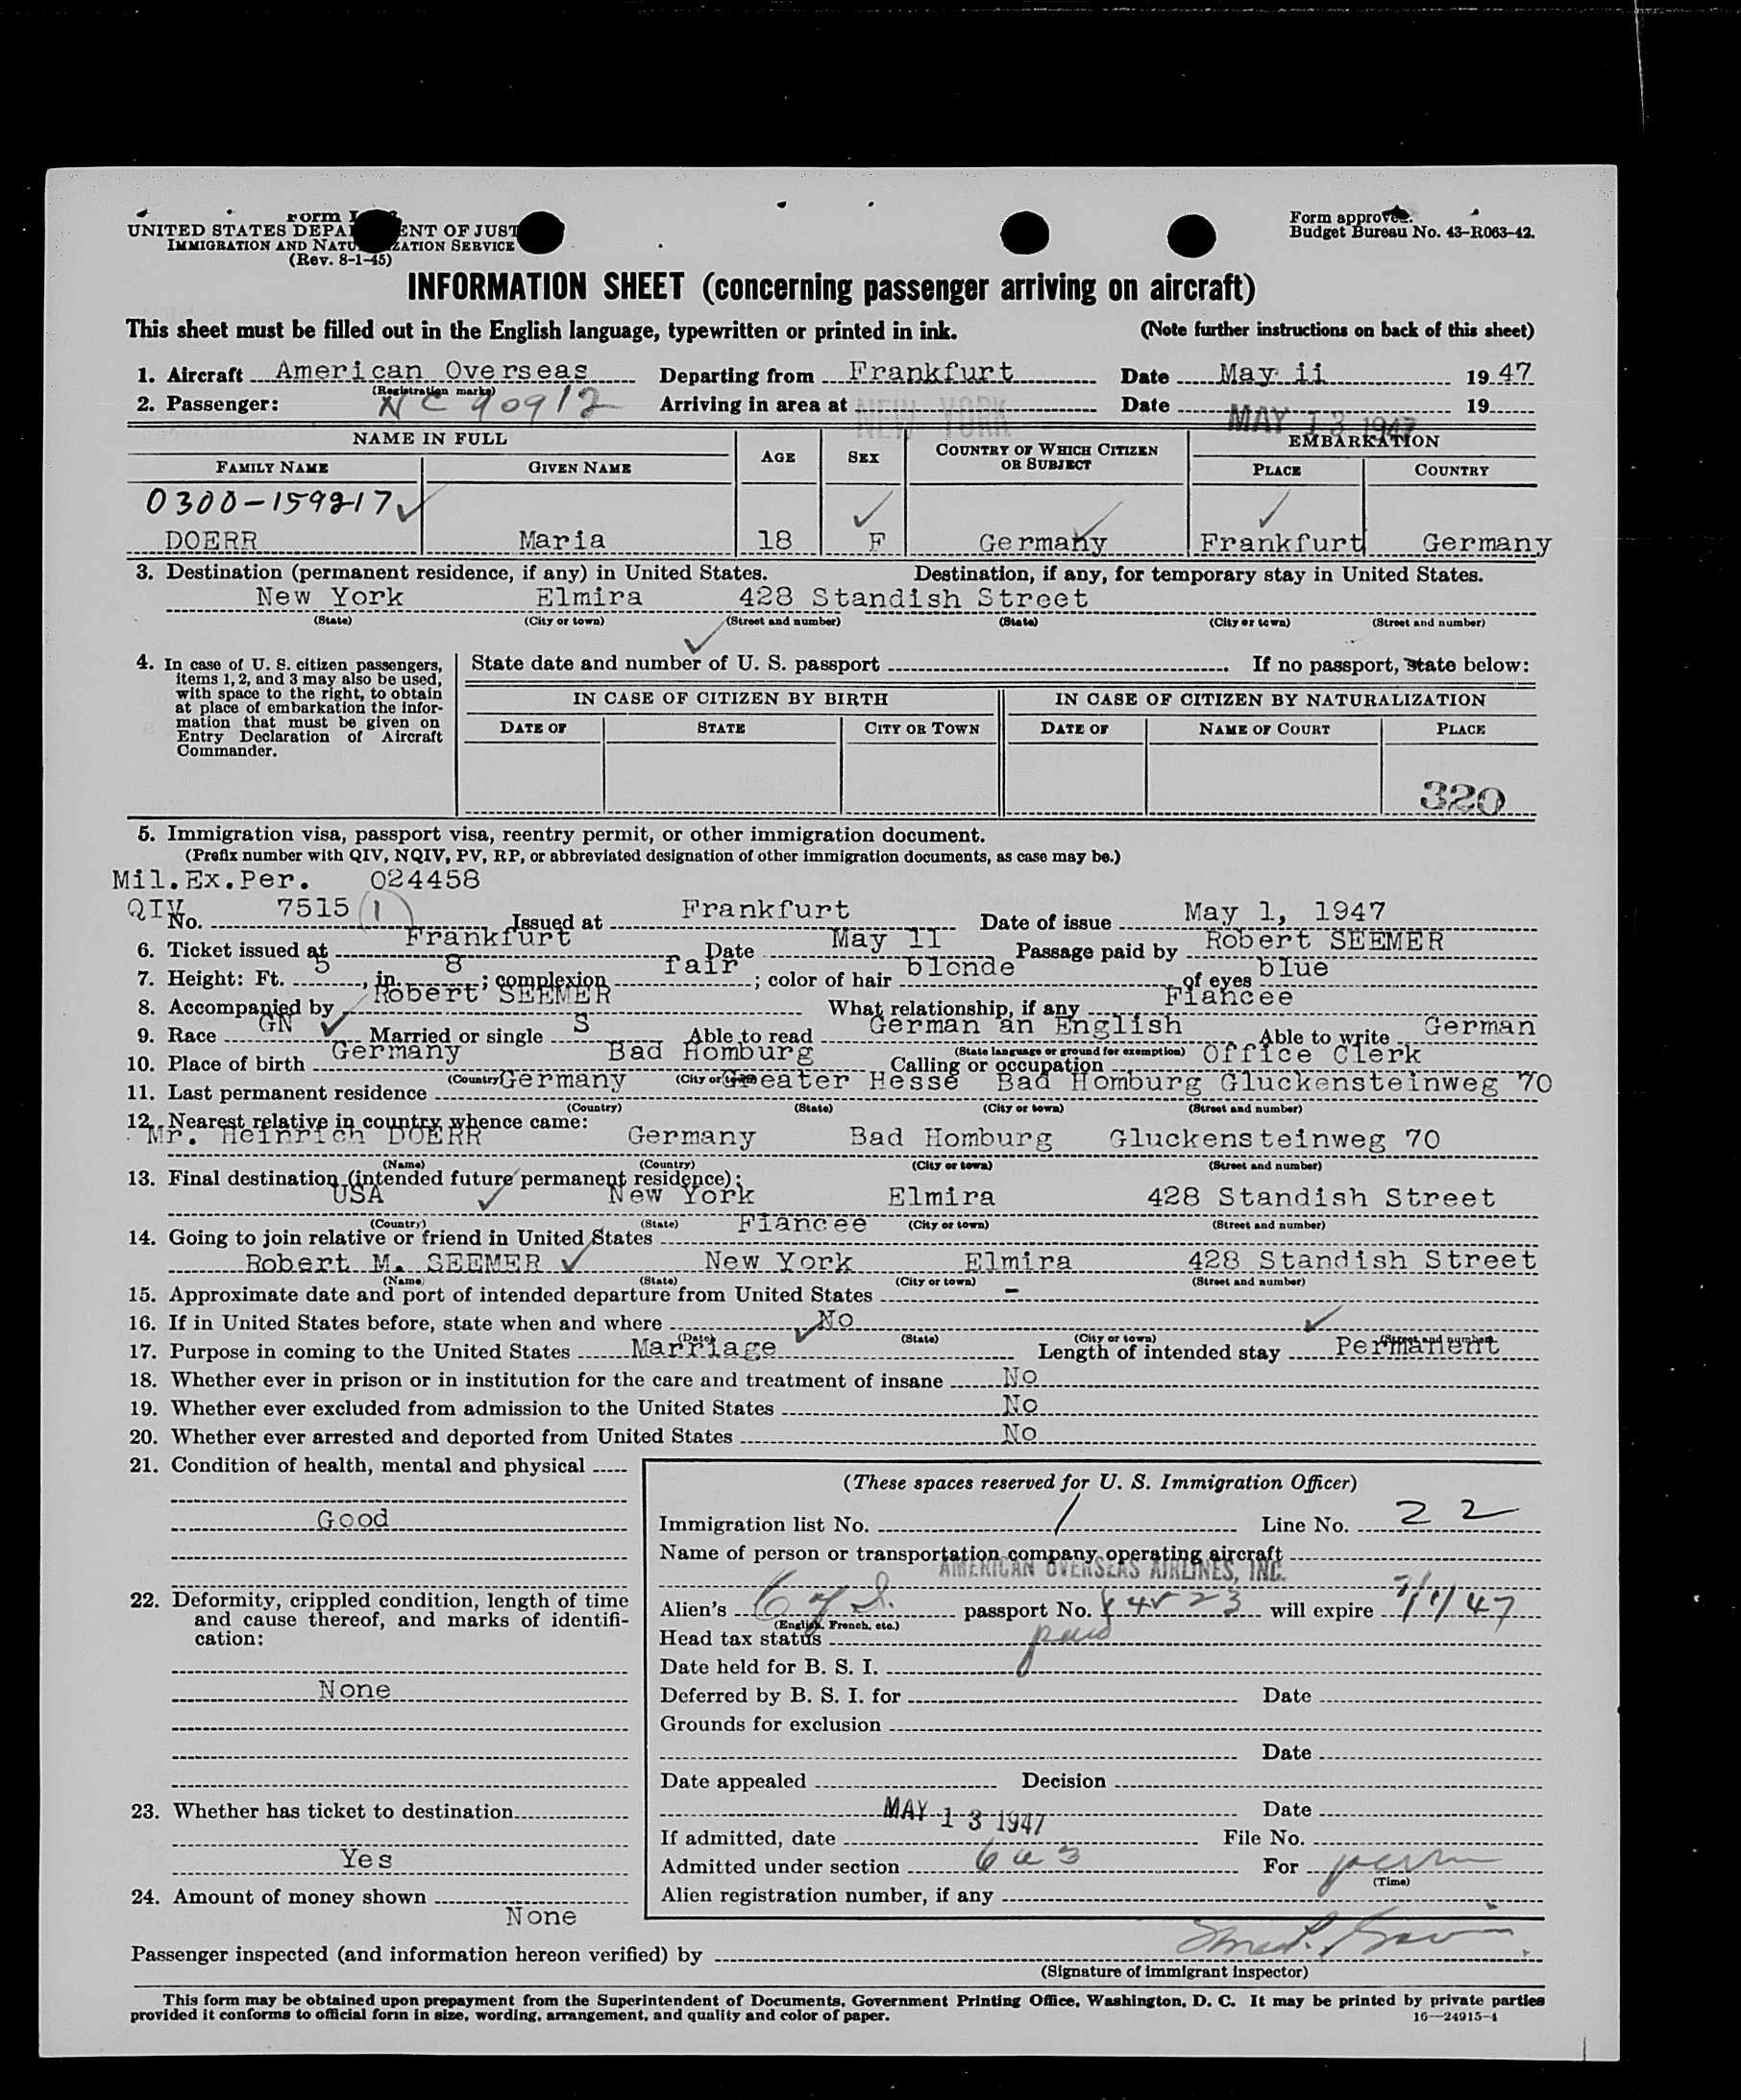 Form I
UNITED STATES DEPA ENT OF JUST
IMMIGRATION AND NATU ZATION SERVICE
(Rev. 8-1-45)
Form approved.
Budget Bureau No. 43-R063-42.
INFORMATION SHEET (concerning passenger arriving on aircraft)
This sheet must be filled out in the English language, typewritten or printed in ink. (Note further instructions on back of this sheet)
1. Aircraft American Overseas Departing from Frankfurt Date May ii 19 47
(Registration marks)
2. Passenger: NC 90912 Arriving in area at NEW YORK Date MAY 13 1947 19
NAME IN FULL AGE SEX COUNTRY OF WHICH CITIZEN OR SUBJECT EMBARKATION
FAMILY NAME GIVEN NAME PLACE COUNTRY
0300-159217
DOERR Maria 18 F Germany Frankfurt Germany
3. Destination (permanent residence, if any) in United States. Destination, if any, for temporary stay in United States.
New York Elmira 428 Standish Street
(State) (City or town) (Street and number) (State) (City or town) (Street and number)
4. In case of U. S. citizen passengers, items 1, 2, and 3 may also be used, with space to the right, to obtain at place of embarkation the information that must be given on Entry Declaration of Aircraft Commander.
State date and number of U. S. passport . If no passport, state below:
IN CASE OF CITIZEN BY BIRTH IN CASE OF CITIZEN BY NATURALIZATION
DATE OF STATE CITY OR TOWN DATE OF NAME OF COURT PLACE
320
5. Immigration visa, passport visa, reentry permit, or other immigration document.
(Prefix number with QIV, NQIV, PV, RP, or abbreviated designation of other immigration documents, as case may be.)
Mil.Ex.Per. 024458
QIV No. 7515 (1) Issued at Frankfurt Date of issue May 1, 1947
6. Ticket issued at Frankfurt Date May 11 Passage paid by Robert SEEMER
7. Height: Ft. 5, in. 8; complexion fair; color of hair blonde of eyes blue
8. Accompanied by Robert SEEMER What relationship, if any Fiancee
9. Race GN Married or single S Able to read German an English Able to write German
(State language or ground for exemption)
10. Place of birth Germany Bad Homburg Calling or occupation Office Clerk
(Country) (City or town)
11. Last permanent residence Germany Greater Hesse Bad Homburg Gluckensteinweg 70
(Country) (State) (City or town) (Street and number)
12. Nearest relative in country whence came:
Mr. Heinrich DOERR Germany Bad Homburg Gluckensteinweg 70
(Name) (Country) (City or town) (Street and number)
13. Final destination (intended future permanent residence):
USA New York Elmira 428 Standish Street
(Country) (State) (City or town) (Street and number)
14. Going to join relative or friend in United States Fiancee
Robert M. SEEMER New York Elmira 428 Standish Street
(Name) (State) (City or town) (Street and number)
15. Approximate date and port of intended departure from United States -
16. If in United States before, state when and where No
(Date) (State) (City or town) (Street and number)
17. Purpose in coming to the United States Marriage Length of intended stay Permanent
18. Whether ever in prison or in institution for the care and treatment of insane No
19. Whether ever excluded from admission to the United States No
20. Whether ever arrested and deported from United States No
21. Condition of health, mental and physical
Good
22. Deformity, crippled condition, length of time and cause thereof, and marks of identification:
None
23. Whether has ticket to destination
Yes
24. Amount of money shown
None
(These spaces reserved for U. S. Immigration Officer)
Immigration list No. 1 Line No. 22
Name of person or transportation company operating aircraft
AMERICAN OVERSEAS AIRLINES, INC.
Alien's passport No. will expire 7/1/47
(English, French, etc.)
Head tax status paid
Date held for B. S. I.
Deferred by B. S. I. for Date
Grounds for exclusion
Date
Date appealed Decision
Date
If admitted, date MAY 13 1947 File No.
Admitted under section 6 a 3 For perm
(Time)
Alien registration number, if any
Passenger inspected (and information hereon verified) by
(Signature of immigrant inspector)
This form may be obtained upon prepayment from the Superintendent of Documents, Government Printing Office, Washington, D. C. It may be printed by private parties
provided it conforms to official form in size, wording, arrangement, and quality and color of paper. 16—24915-1